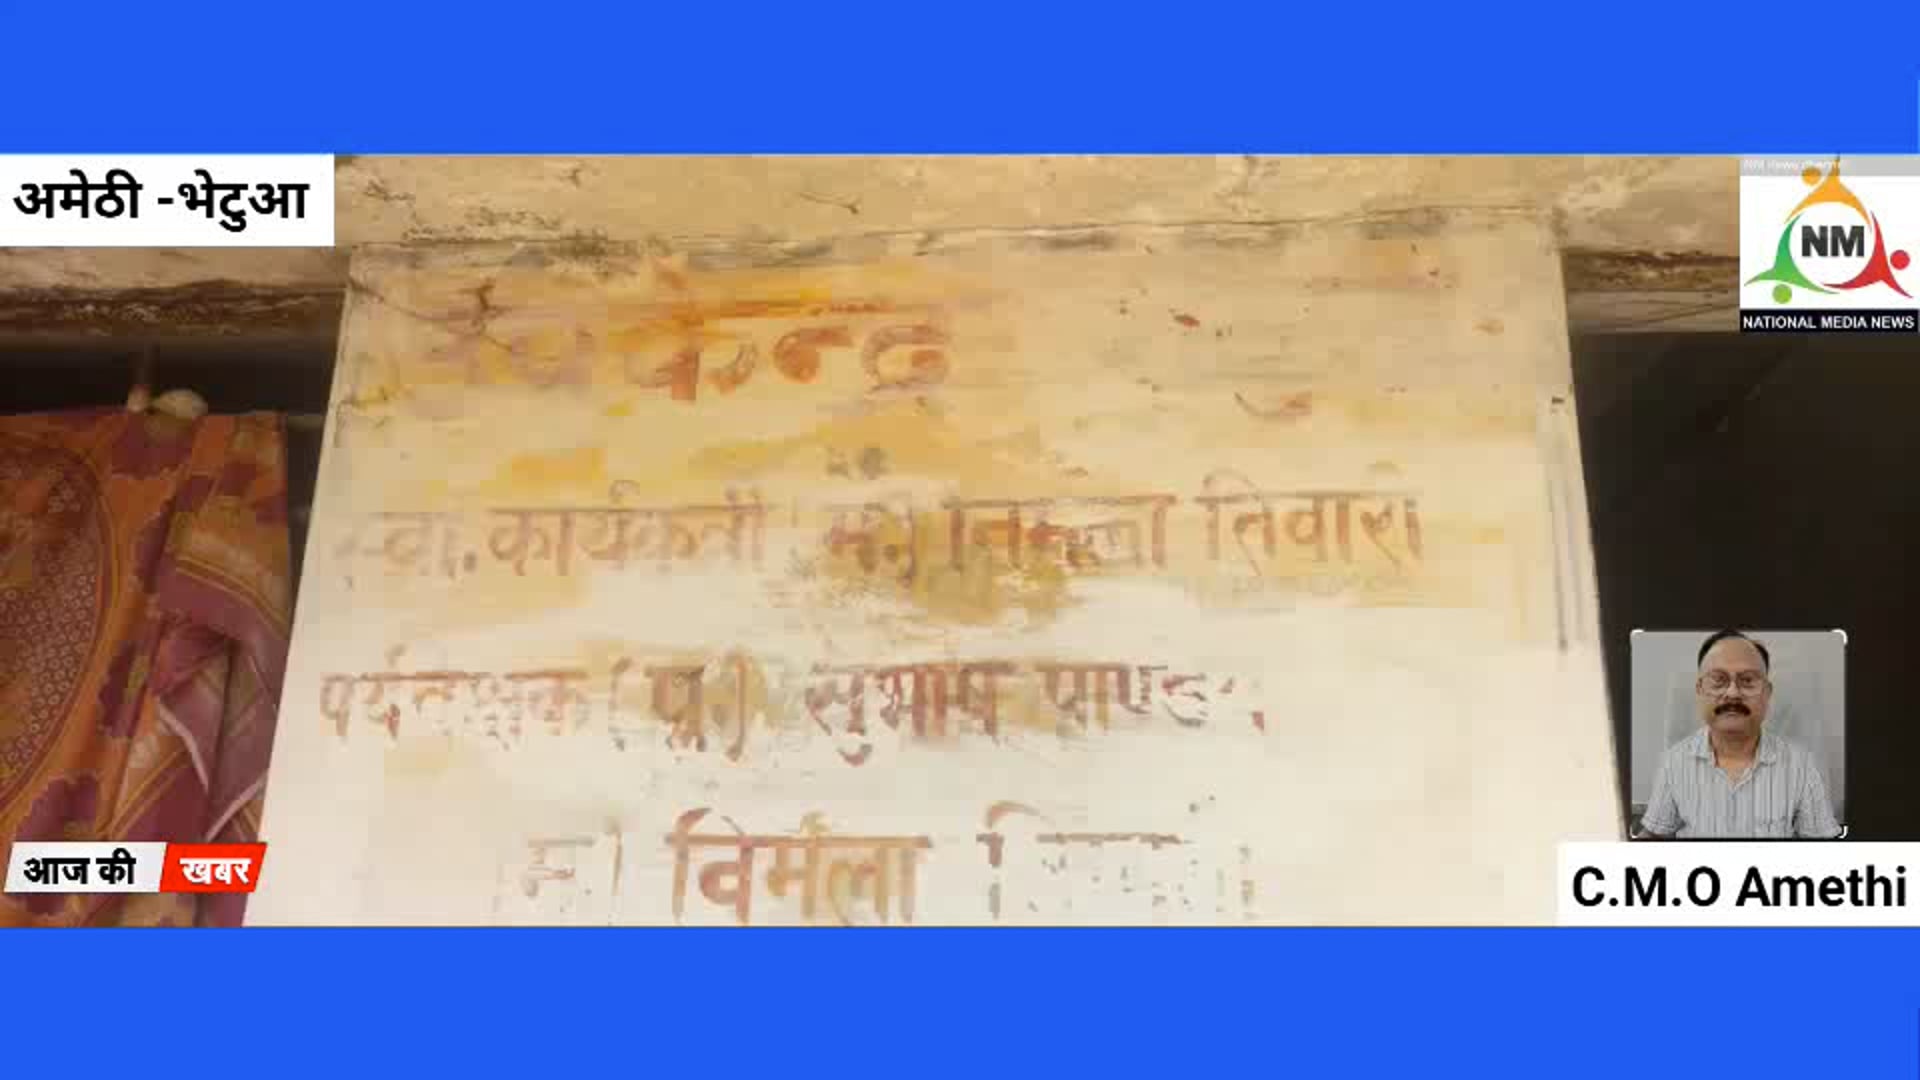 अमेठी -भेटुआ
NM
NATIONAL MEDIA NEWS
केन्द्र
स्वा. कार्यकर्ती (म.) निर्मला तिवारी
पर्यवेक्षक (पु.) सुभाष पाण्डेय
विर्मला
आज की खबर
C.M.O Amethi